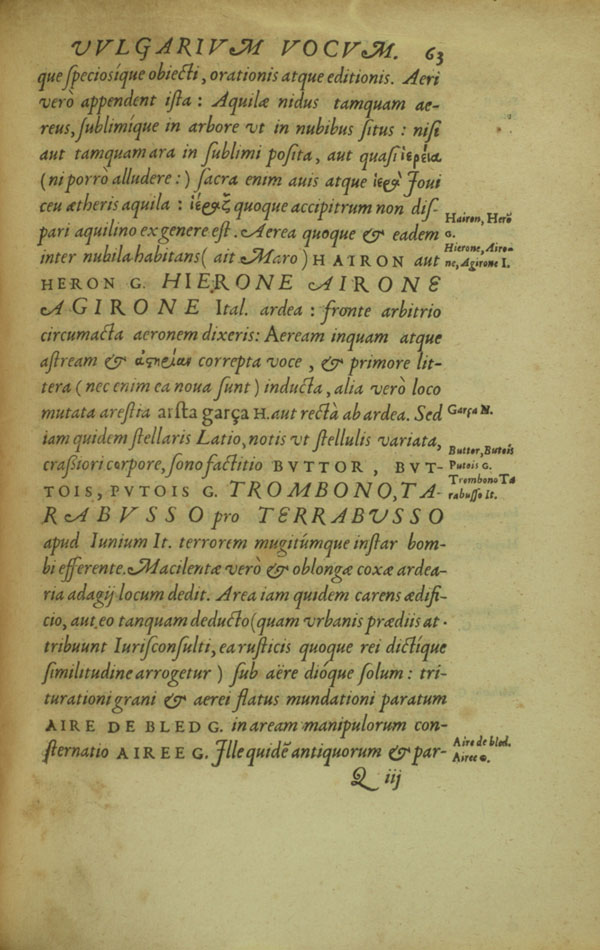 VVLGARIVM VOCVM. 63
que speciosíque obiecti, orationis atque editionis. Aeri
verò appendent ista : Aquilæ nidus tamquam ae-
reus, sublimíque in arbore vt in nubibus situs : nisi
aut tamquam ara in sublimi posita, aut quasi ἱερεία
(ni porrò alludere :) sacra enim auis atque ἱερὰ Joui
ceu ætheris aquila : ἱέραξ quoque accipitrum non dis-
pari aquilino ex genere est. Aerea quoque & eadem
inter nubila habitans ( ait Maro ) HAIRON aut
HERON G. HIERONE AIRONE
AGIRONE Ital. ardea : fronte arbitrio
circumacta aeronem dixeris: Aeream inquam atque
astream & correpta voce, & primore lit-
tera ( nec enim ea noua sunt ) inducta, alia verò loco
mutata arestia arsta garça H. aut rectà ab ardea. Sed
iam quidem stellaris Latio, notis vt stellulis variata,
craßiori corpore, sono factitio BVTTOR, BVT-
TOIS, PVTOIS G. TROMBONO, TA-
RABVSSO pro TERRABVSSO
apud Iunium It. terrorem mugitúmque instar bom-
bi efferente. Macilentæ verò & oblongæ coxæ ardea-
ria adagij locum dedit. Area iam quidem carens ædifi-
cio, aut eo tanquam deducto (quam vrbanis prædiis at-
tribuunt Iurisconsulti, ea rusticis quoque rei dictíque
similitudine arrogetur ) sub aëre dióque solum : tri-
turationi grani & aerei flatus mundationi paratum
AIRE DE BLED G. in aream manipulorum con-
sternatio AIREE G. Jlle quidē antiquorum & par-
Q iij
Hairon, Herō
G.
Hierone, Airo-
ne, Agirone I.
Garça H.
Buttor, Butois
Putois G.
Trombono Ta
rabusso It.
Aire de bled.
Airee G.